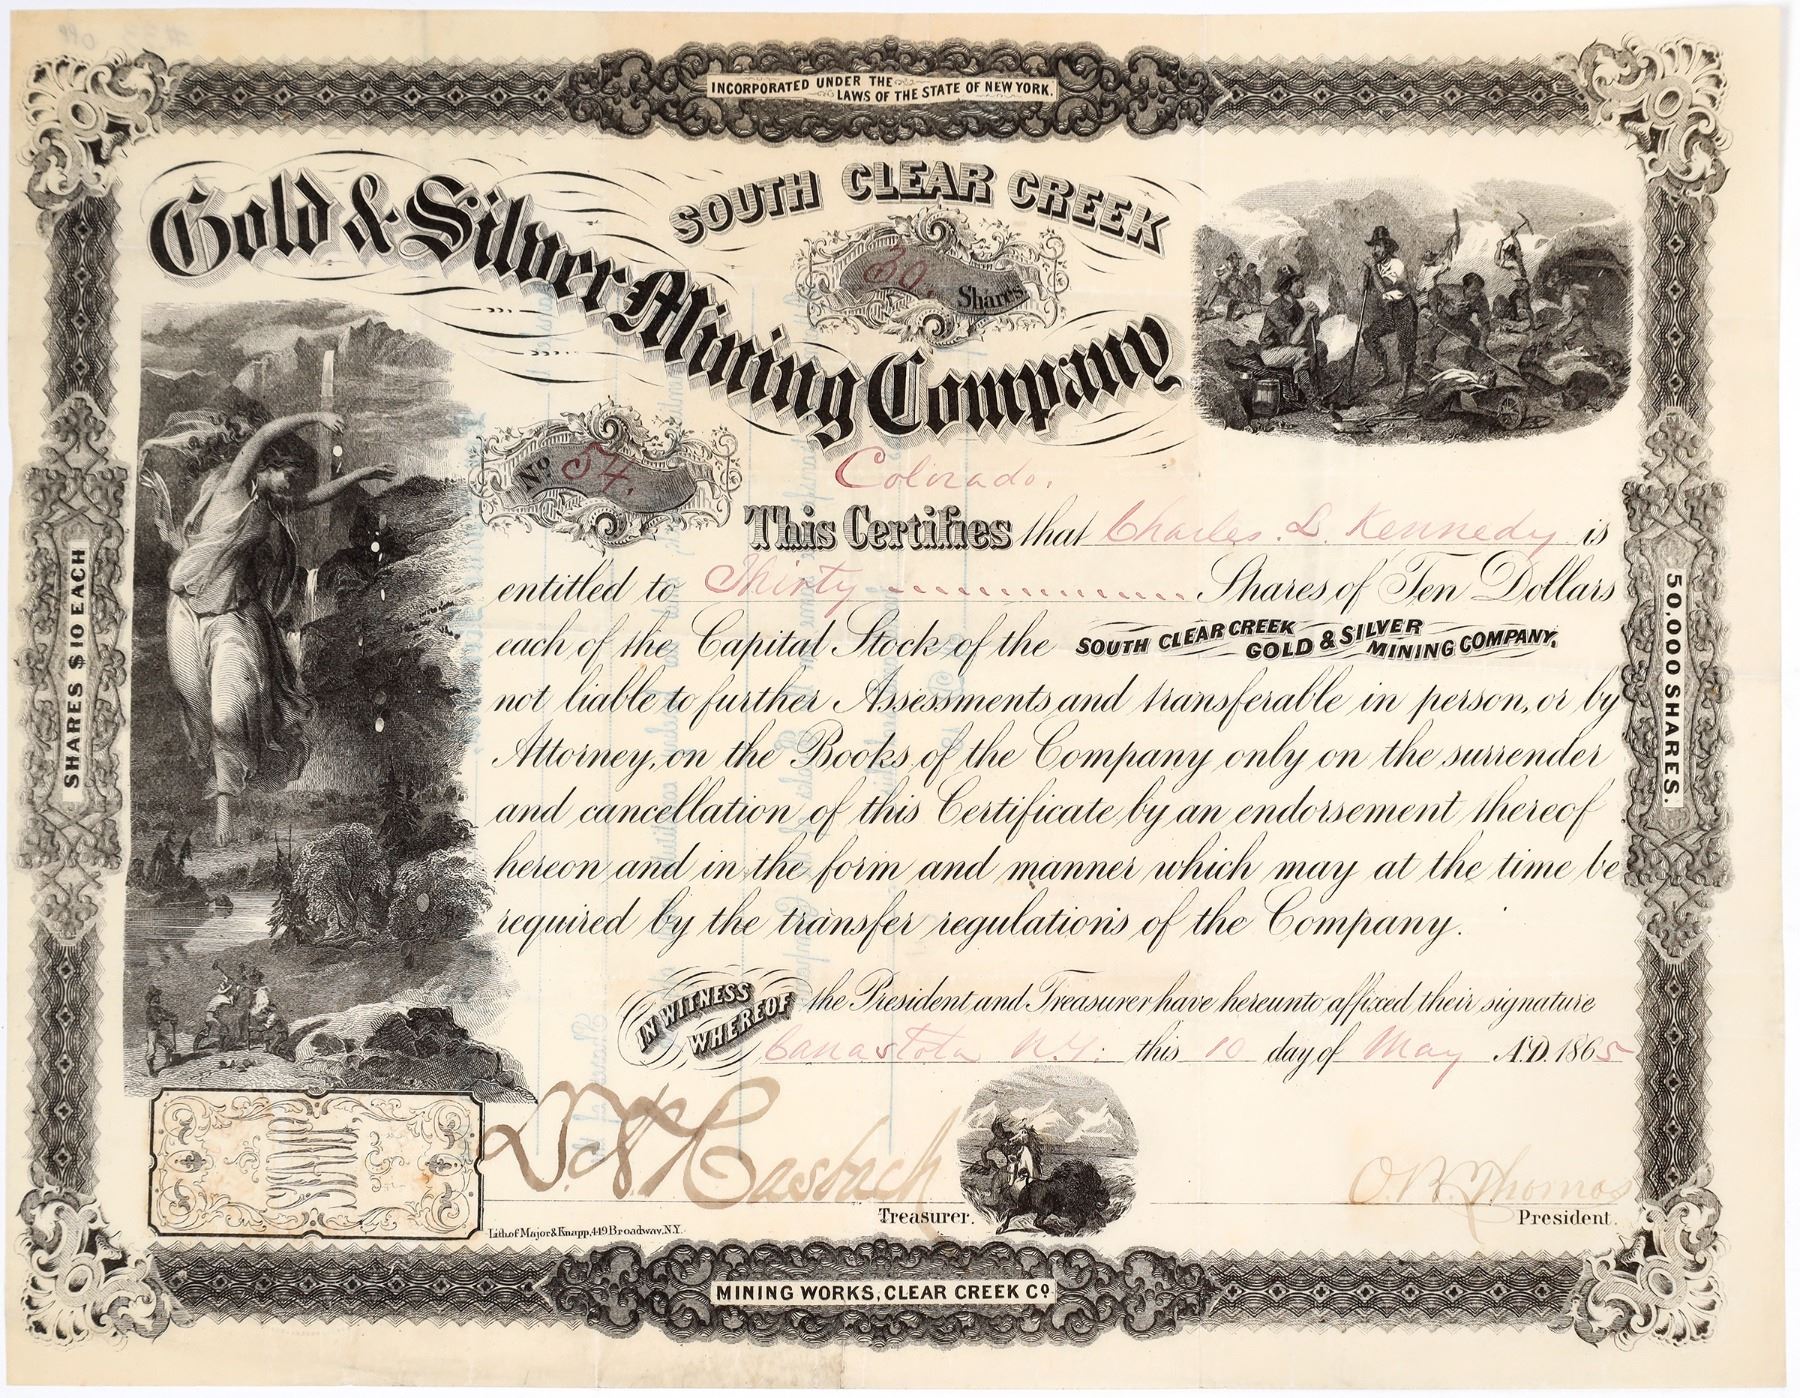 INCORPORATED UNDER THE
LAWS OF THE STATE OF NEW YORK.
SOUTH CLEAR CREEK
Gold & Silver Mining Company
30. Shares
No 54.
Colorado.
This Certifies that Charles. L. Kennedy is
entitled to Thirty Shares of Ten Dollars
each of the Capital Stock of the SOUTH CLEAR CREEK GOLD & SILVER MINING COMPANY,
not liable to further Assessments and transferable in person, or by
Attorney, on the Books of the Company only on the surrender
and cancellation of this Certificate by an endorsement thereof
hereon and in the form and manner which may at the time be
required by the transfer regulations of the Company.
IN WITNESS WHEREOF the President and Treasurer have hereunto affixed their signature
Canastota N.Y. this 10 day of May A.D. 1865
Treasurer.
O. Thomas
President.
Lith. of Major & Knapp, 449 Broadway, N.Y.
MINING WORKS, CLEAR CREEK Co.
SHARES $10 EACH
50,000 SHARES.